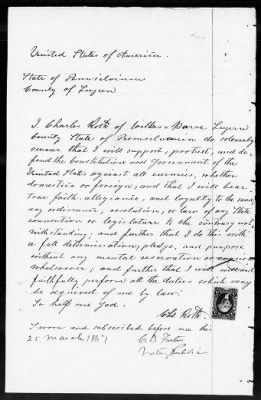 United States of America
State of Pennsylvania
County of Luzern
I Charles Roth of Wilkes Barre Luzern
County State of Pennsylvania do solemnly
swear that I will support, protect, and de,
fend the Constitution and Government of the
United States against all enemies, whether
domestic or foreign, and that I will bear
true faith, allegiance, and loyalty to the same
any ordinance, resolution, or law of any State
convention or legislature to the contrary not
withstanding; and further that I do this with
a full determination, pledge, and purpose
without any mental reservation or evasion
whatsoever; and further that I will
faithfully perform all the duties which may
be required of me by law.
So help me God.
Chs Roth
Sworn and subscribed before me this
25 March 1867
Notary Public